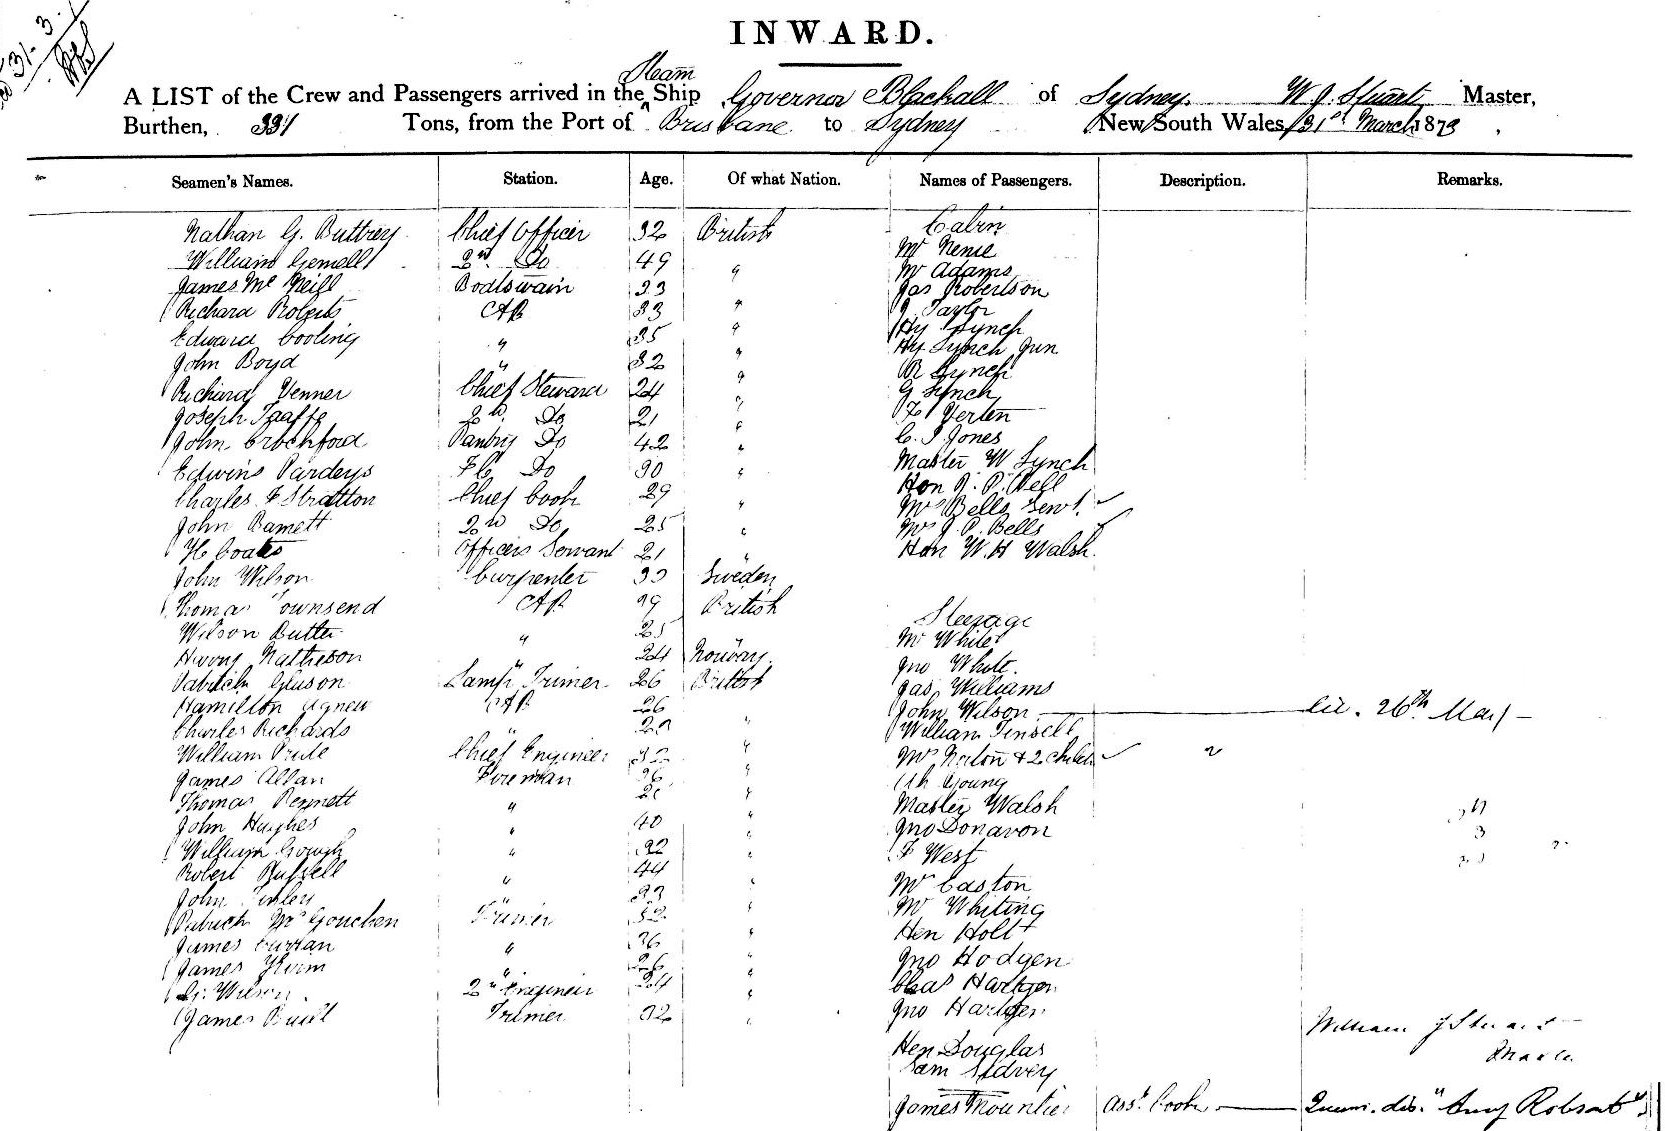 31-3
INWARD.
Steam
A LIST of the Crew and Passengers arrived in the Ship Governor Blackall of Sydney W. J. Stuart Master,
Burthen, 331 Tons, from the Port of Brisbane to Sydney New South Wales 31st March 1873
Seamen's Names. Station. Age. Of what Nation. Names of Passengers. Description. Remarks.
Nathan G. Buttrey Chief Officer 32 British Cabin
William Gemell 2nd Do 49 " Mr
James Mc Neill Boatswain 33 " Mr Adams
Richard Roberts AB 33 " Jas Robertson
Edward Cooling " 35 " J Taylor
John Boyd " 32 " Hy Lynch
Richard Venner Chief Steward 24 " Hy Lynch Jun
Joseph Taaffe 2nd Do 21 " R Lynch
John Crochford Pantry Do 42 " G Lynch
Edwin Pardeys F.C. Do 30 " F
Charles F Stratton Chief Cook 29 " C. J Jones
John Barnett 2nd Do 25 " Master W Lynch
H Coates Officers Servant 21 " Hon J. P. Bell
John Wilson Carpenter 33 Sweden Mrs Bells Servt.
Thomas Townsend AB 29 British Mrs J. P. Bells
Wilson Butler " 25 " Hon W. H Walsh
Matheson 24 Norway Steerage
Patrick Gleeson Lamp Trimer 26 British Mr White
Hamilton Agnew AB 26 Jno White
Charles Richards " " Jas Williams
William Pride Chief Engineer 32 " John Wilson 26th
James Allan Fireman 26 " William Tinsell
Thomas Bennett " " Mrs & 2 children
John Hughes " 40 " Young
William Gough " 32 " Master Walsh
Robert Russell " 44 " Jno Donavon
John " 33 " F West
Patrick Mc Trimer 32 " Mr Easton
James Curran " 26 " Mr Whiting
James " 26 " Hen Holt
Wilson 2nd Engineer 24 " Jno Hodgen
James Trimer 32 " Chas Hartgen
Jno Hartgen
William J Stuart
Master
Hen Douglas
Sam Sidney
James Mountier Asst Cook dis. "Amy Robsart"